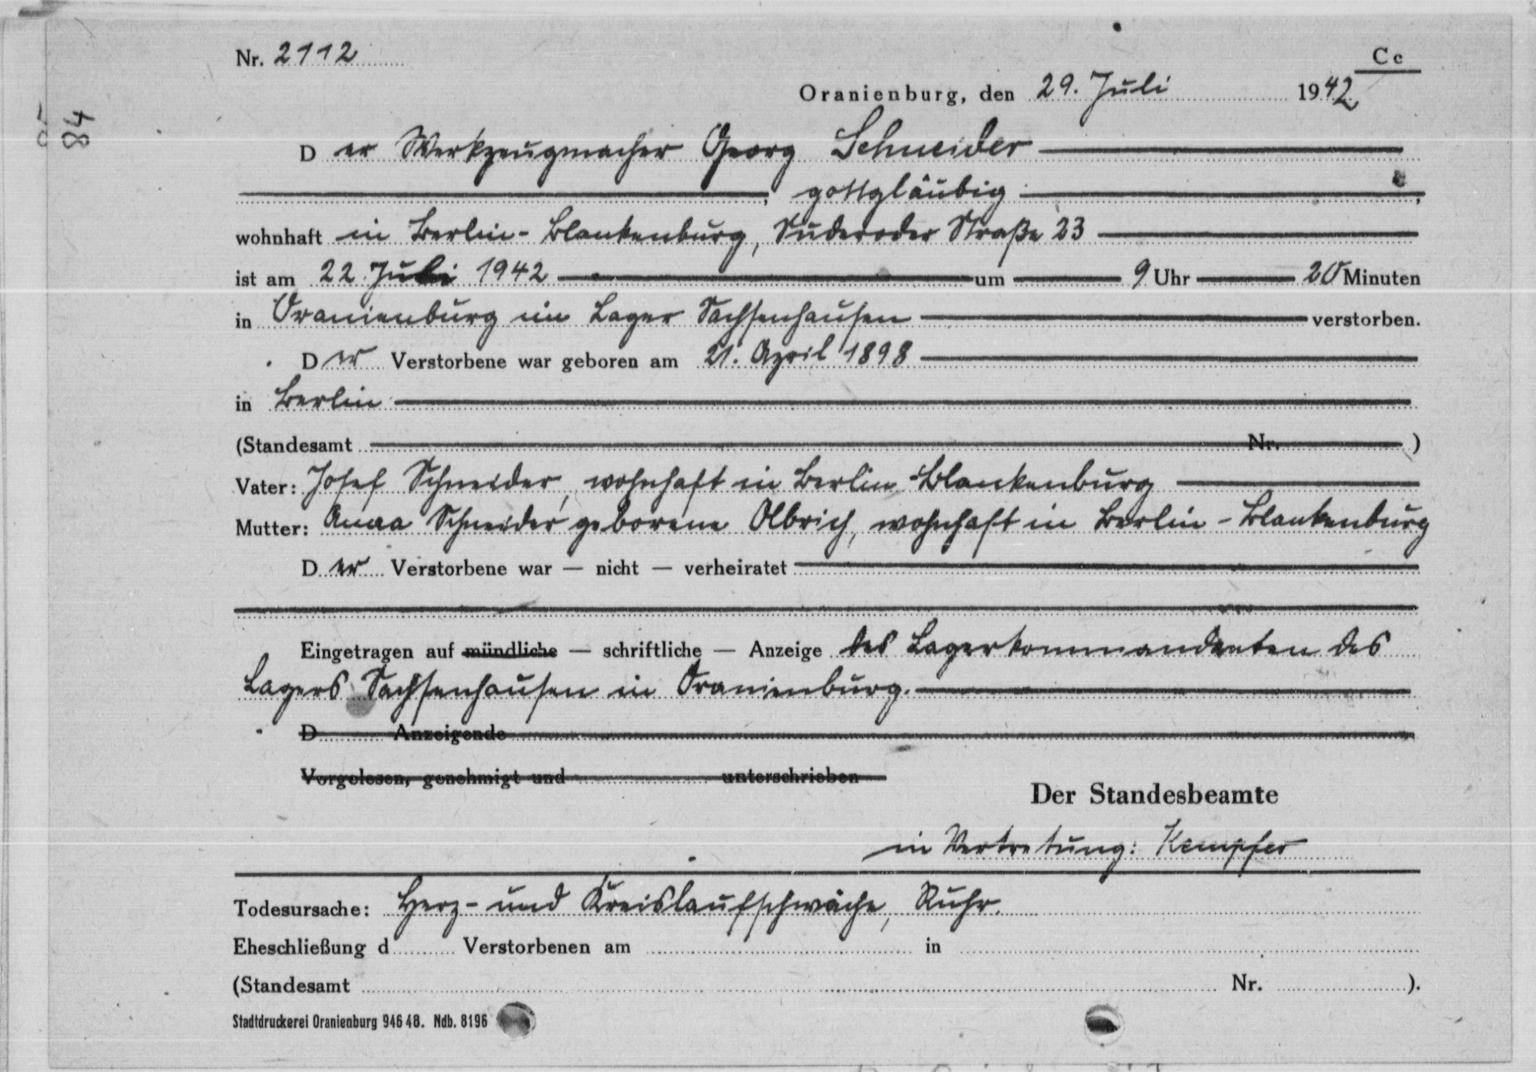 Nr. 2112
Cc
Oranienburg, den 29. Juli 1942
84
Der Werkzeugmacher Georg Schneider
, gottgläubig ,
wohnhaft in Berlin-Blankenburg, Suderoder Straße 23
ist am 22. Juli 1942 um 9 Uhr 20 Minuten
in Oranienburg im Lager Sachsenhausen verstorben.
Der Verstorbene war geboren am 21. April 1898
in Berlin
(Standesamt Nr. )
Vater: Josef Schneider, wohnhaft in Berlin-Blankenburg
Mutter: Anna Schneider geborene Olbrich, wohnhaft in Berlin-Blankenburg
Der Verstorbene war — nicht — verheiratet
Eingetragen auf mündliche — schriftliche — Anzeige des Lagerkommandanten des
Lagers Sachsenhausen in Oranienburg.
D Anzeigende
Vorgelesen, genehmigt und unterschrieben
Der Standesbeamte
in Vertretung: Kempfer
Todesursache: Herz- und Kreislaufschwäche, Ruhr.
Eheschließung d Verstorbenen am in
(Standesamt Nr. ).
Stadtdruckerei Oranienburg 946 48. Ndb. 8196